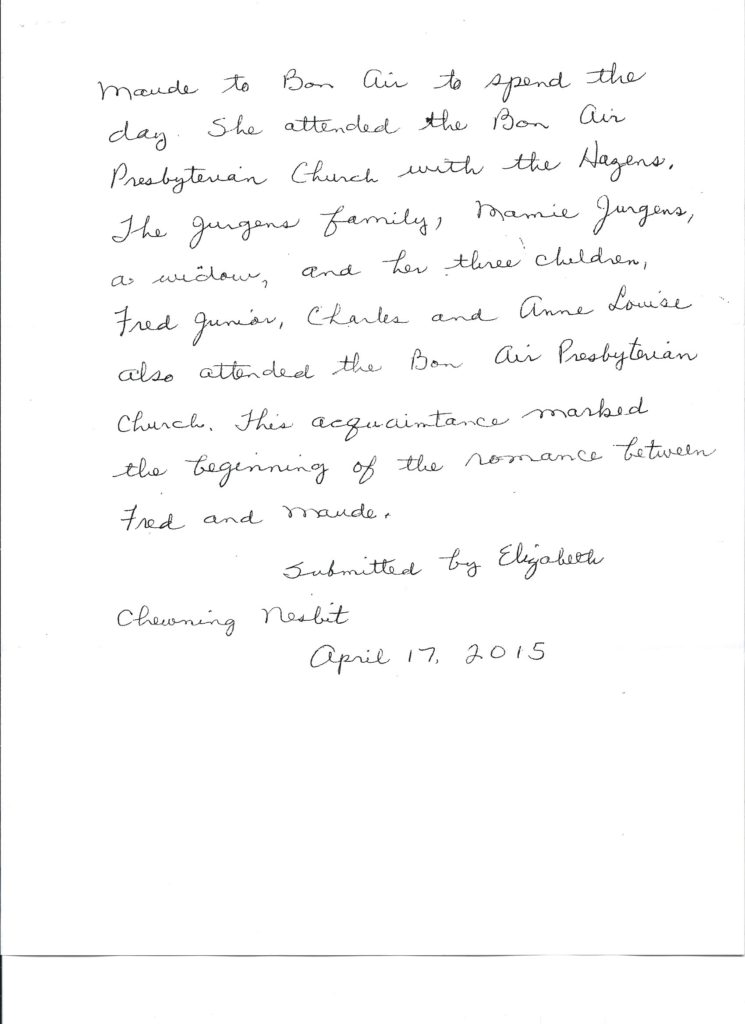 Maude to Bon Air to spend the
day. She attended the Bon Air
Presbyterian Church with the Hagens.
The Jurgens family, Mamie Jurgens,
a widow, and her three children,
Fred Junior, Charles and Anne Louise
also attended the Bon Air Presbyterian
Church. This acquaintance marked
the beginning of the romance between
Fred and Maude.
Submitted by Elizabeth
Chewning Nesbit
April 17, 2015